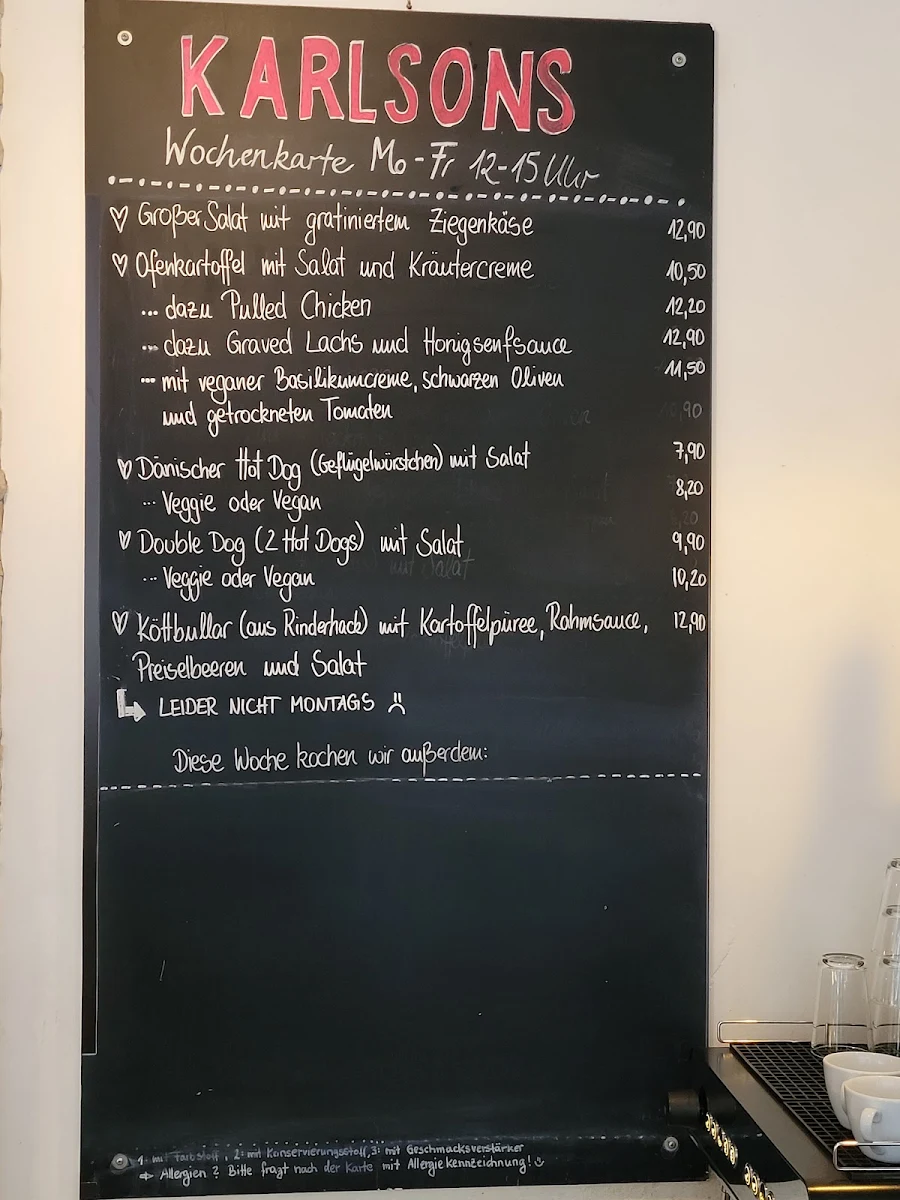 KARLSONS
Wochenkarte Mo - Fr 12-15 Uhr
Großer Salat mit gratiniertem Ziegenkäse 12,90
Ofenkartoffel mit Salat und Kräutercreme 10,50
... dazu Pulled Chicken 12,20
... dazu Graved Lachs und Honigsenfsauce 12,90
... mit veganer Basilikumcreme, schwarzen Oliven 11,50
und getrockneten Tomaten
Dänischer Hot Dog (Geflügelwürstchen) mit Salat 7,90
... Veggie oder Vegan 8,20
Double Dog (2 Hot Dogs) mit Salat 9,90
... Veggie oder Vegan 10,20
Köttbullar (aus Rinderhack) mit Kartoffelpüree, Rahmsauce, 12,90
Preiselbeeren und Salat
LEIDER NICHT MONTAGS
Diese Woche kochen wir außerdem:
1: mit Farbstoff, 2: mit Konservierungsstoff, 3: mit Geschmacksverstärker
→ Allergien? Bitte fragt nach der Karte mit Allergiekennzeichnung!